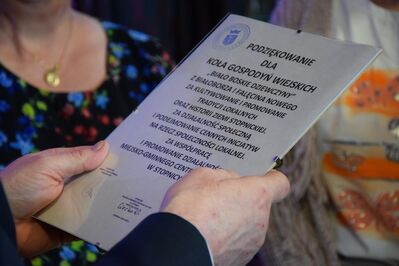 PODZIĘKOWANIE
DLA
KOŁA GOSPODYŃ WIEJSKICH
„BIAŁO BOSKIE DZIEWCZYNY"
Z BIAŁOBORZA I FALĘCINA NOWEGO
ZA KULTYWOWANIE I PROMOWANIE
TRADYCJI LOKALNYCH
ORAZ HISTORII ZIEMI STOPNICKIEJ
ZA DZIAŁALNOŚĆ SPOŁECZNĄ
I PODEJMOWANIE CENNYCH INICJATYW
NA RZECZ SPOŁECZNOŚCI LOKALNEJ,
ZA WSPÓŁPRACĘ
I PROMOWANIE DZIAŁALNOŚCI
MIEJSKO-GMINNEGO
W STOPNICY